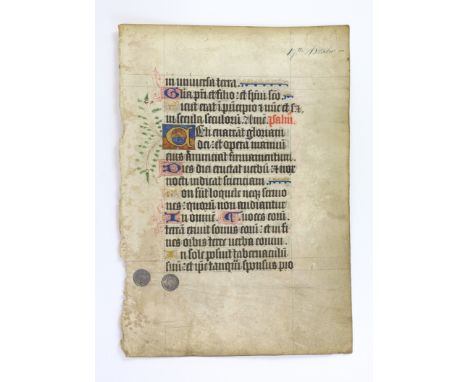 in universa terra.
Glia pri et filio: et spiri sco
icut erat i principio et nūc et sē
in secula seculorū. Amē. psalm.
Celi enarrāt gloriam
dei: et opera manuum
eius annunciat firmamentum.
Dies diei eructat verbū: et nox
nocti indicat scienciam.
on sūt loquele neqȝ sermo
nes: quorum non audiantur
In omnē voces eorū.
terrā exivit sonus eorū: et in fi
nes orbis terre verba eorum.
In sole posuit tabernaculū
suū: et ipse tanquā sponsus pro